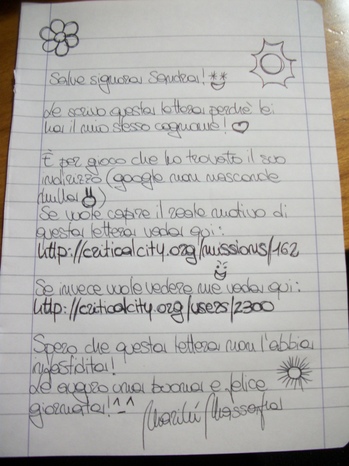 Salve signora Sandra!
Le scrivo questa lettera perchè lei
ha il mio stesso cognome!
È per gioco che ho trovato il suo
indirizzo (google non nasconde
nulla)
Se vuole capire il reale motivo di
questa lettera vada qui:
http://criticalcity.org/missions/162
Se invece vuole vedere me vada qui:
http://criticalcity.org/users/2300
Spero che questa lettera non l'abbia
infastidita!
Le auguro una buona e felice
giornata! ^_^